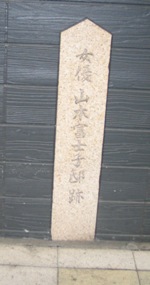 女優 山本富士子邸跡